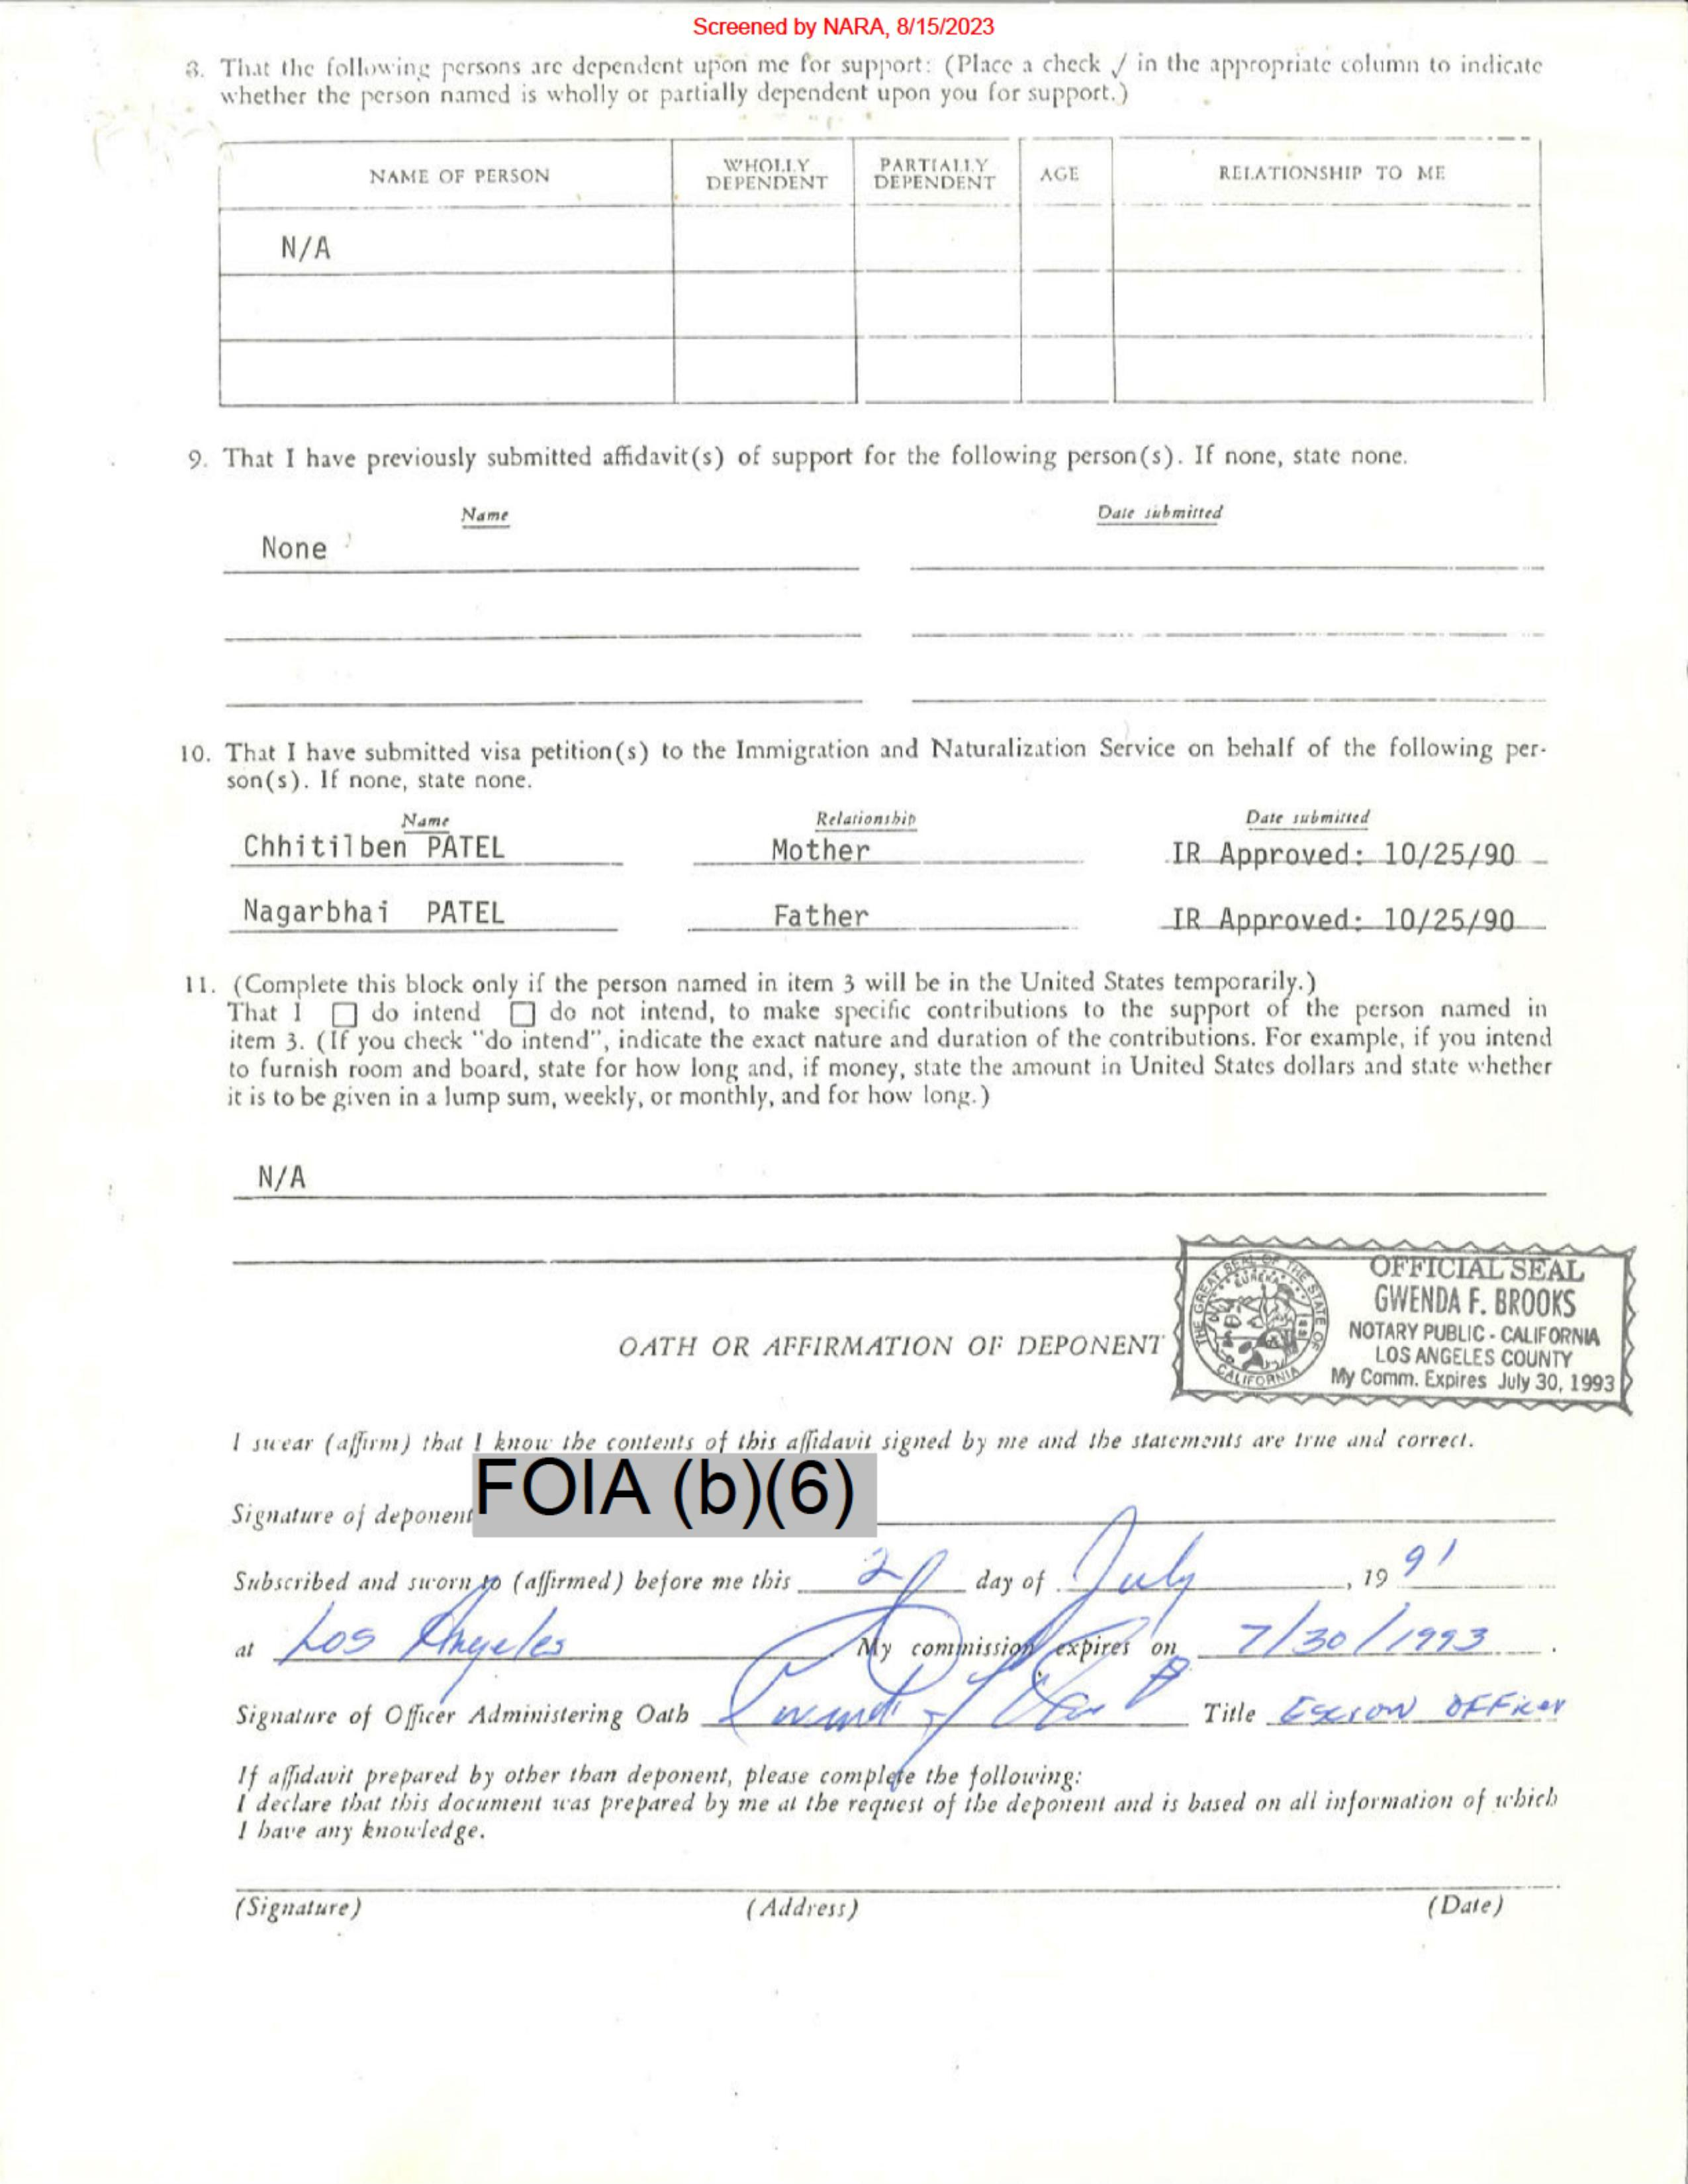 Screened by NARA, 8/15/2023
8. That the following persons are dependent upon me for support: (Place a check √ in the appropriate column to indicate
whether the person named is wholly or partially dependent upon you for support.)
NAME OF PERSON WHOLLY DEPENDENT PARTIALLY DEPENDENT AGE RELATIONSHIP TO ME
N/A
9. That I have previously submitted affidavit(s) of support for the following person(s). If none, state none.
Name Date submitted
None
10. That I have submitted visa petition(s) to the Immigration and Naturalization Service on behalf of the following per-
son(s). If none, state none.
Name Relationship Date submitted
Chhitilben PATEL Mother IR Approved: 10/25/90
Nagarbhai PATEL Father IR Approved: 10/25/90
11. (Complete this block only if the person named in item 3 will be in the United States temporarily.)
That I ☐ do intend ☐ do not intend, to make specific contributions to the support of the person named in
item 3. (If you check "do intend", indicate the exact nature and duration of the contributions. For example, if you intend
to furnish room and board, state for how long and, if money, state the amount in United States dollars and state whether
it is to be given in a lump sum, weekly, or monthly, and for how long.)
N/A
THE GREAT SEAL OF THE STATE OF CALIFORNIA
EUREKA
OFFICIAL SEAL
GWENDA F. BROOKS
NOTARY PUBLIC - CALIFORNIA
LOS ANGELES COUNTY
My Comm. Expires July 30, 1993
OATH OR AFFIRMATION OF DEPONENT
I swear (affirm) that I know the contents of this affidavit signed by me and the statements are true and correct.
Signature of deponent FOIA (b)(6)
Subscribed and sworn to (affirmed) before me this 2 day of July, 19 91
at Los Angeles. My commission expires on 7/30/1993.
Signature of Officer Administering Oath Title Escrow OFFicer
If affidavit prepared by other than deponent, please complete the following:
I declare that this document was prepared by me at the request of the deponent and is based on all information of which
I have any knowledge.
(Signature) (Address) (Date)